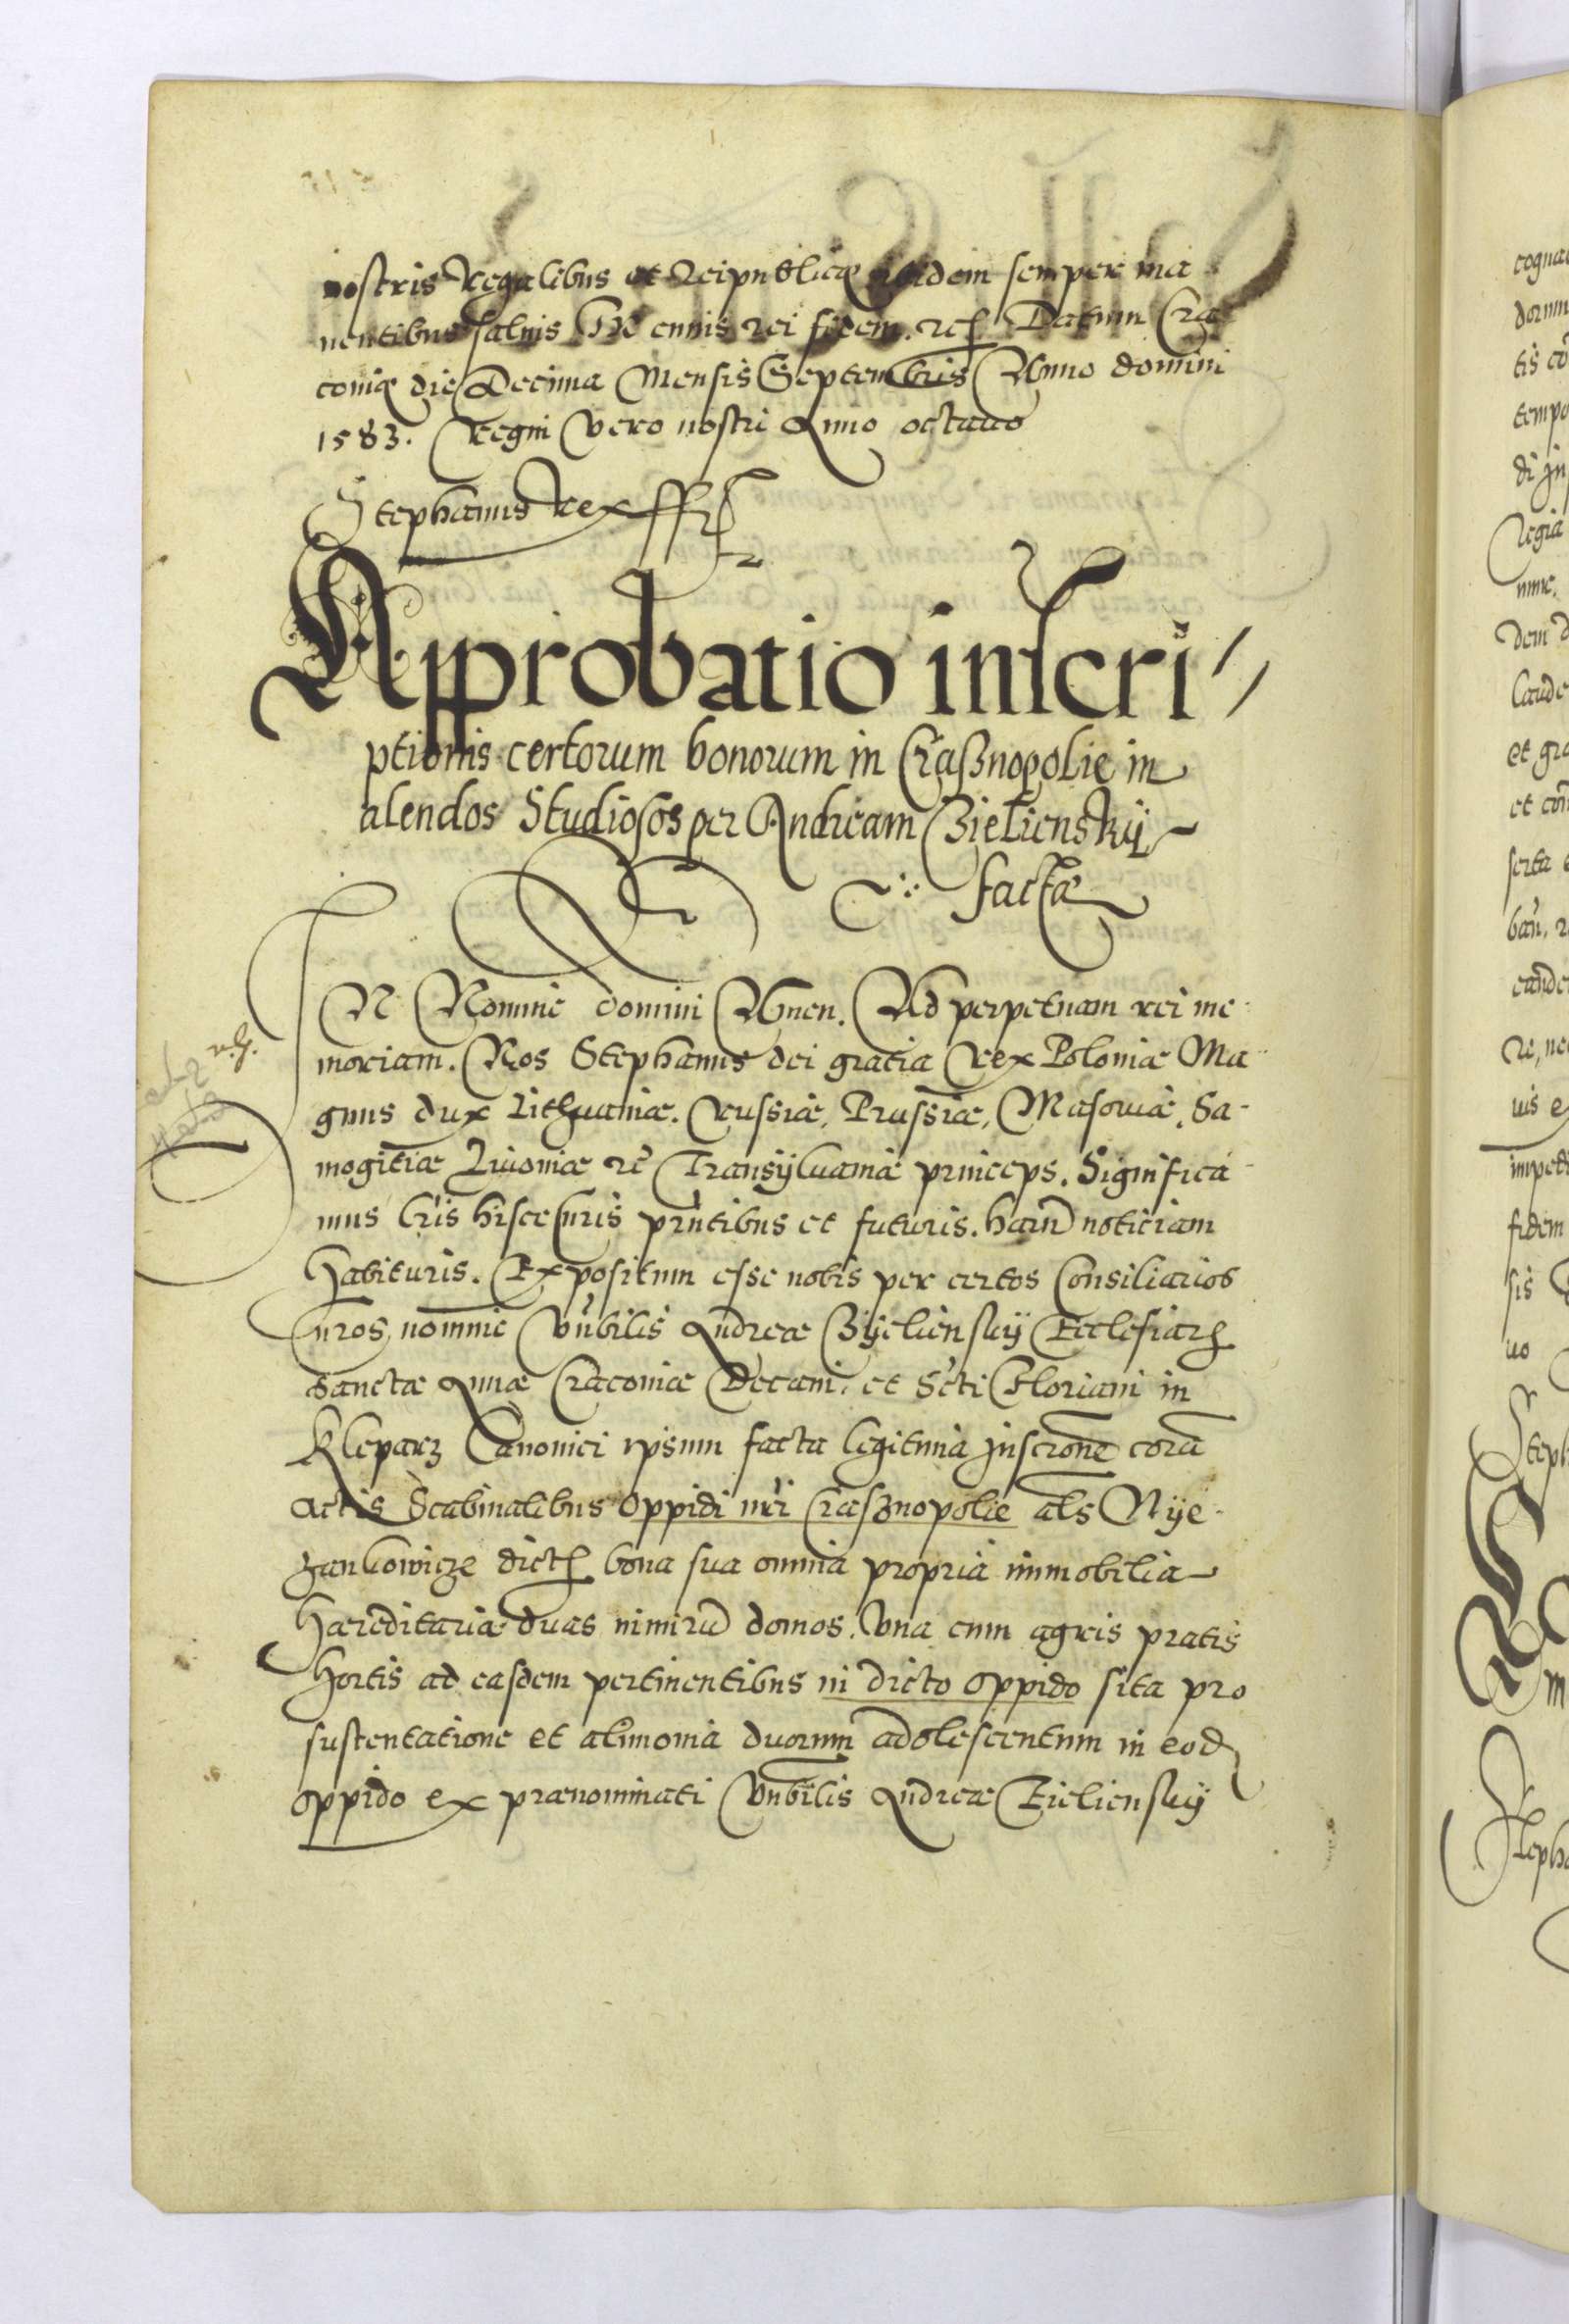 nostris Regalibus et Reipublicæ ibidem semper ma
nentibus saluis In cuius rei fidem. etc. Datum Cra
coviæ die Decima Mensis Septembris Anno domini
1583. Regni vero nostri Anno octauo
Stephanus Rex ssst
Approbatio inscri
ptionis certorum bonorum in Craßnopolie in
alendos Studiosos per Andream Zielienskij
facta
IN Nomine domini Amen. Ad perpetuam rei me
moriam. Nos Stephanus dei gratia Rex Poloniæ Ma
gnus dux Lithuaniæ. Russiæ, Prussiæ, Masouiæ, Sa-
mogitiæ Liuoniæ etc Transyluaniæ princeps. Significa
mus lris hisce nris prntibus et futuris. harum noticiam
habituris. Expositum esse nobis per certos Consiliarios
nros, nomine Vnbilis Andreæ Zyelienskij Ecclesiarum
sanctæ Annæ Cracoviæ Decani. et Scti Floriani in
Kleparz Canonici ipsum facta legitima Inscrone cora
actis Scabinalibus oppidi nri Craßnopolie als Nije-
zankowicze dict bona sua omnia propria immobilia
hæreditaria duas nimiru domos. Vna cum agris pratis
hortis ad easdem pertinentibus in dicto oppido sita pro
sustentatione et alimonia duorum adolescentum in eod
oppido ex prænominati Vnbilis Andreæ Zielienskij
cogna
domin
tis co
tempo
di in
Regia
dem d
laude
et gra
et con
serta
eande
uis e
impedi
fidem
sis
uo
Steph